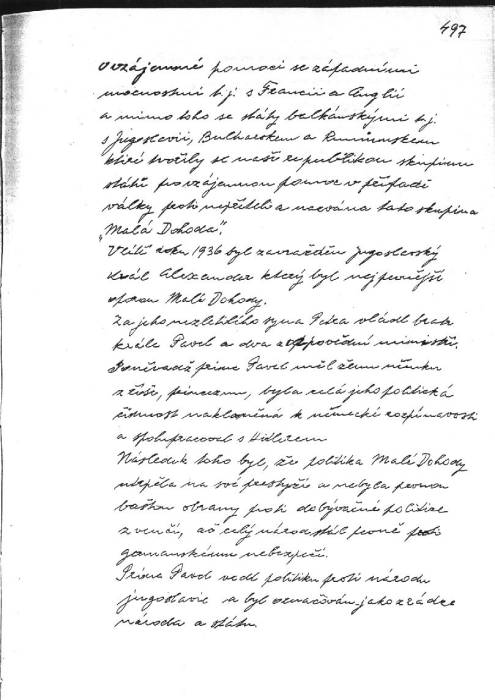 497
o vzájemné pomoci se západními
mocnostmi t.j. s Francií a Anglií
a mimo toho se státy balkánskými t.j.
s Jugoslavií, Bulharskem a Rumunskem
které tvořily se naší republikou skupinu
států pro vzájemnou pomoc v případě
války proti nepříteli a nazvána tato skupina
"Malá Dohoda".
V létě roku 1936 byl zavražděn jugoslavský
král Alexander který byl nejpevnější
oporou Malé Dohody.
Za jeho nezletilého syna Petra vládl bratr
krále Pavel a dva zodpovědní ministři.
Poněvadž princ Pavel měl ženu němku
z říše, princeznu, byla celá jeho politická
činnost nakloněná k německé rozpínavosti
a spolupracoval s Hitlerem
Následek toho byl, že politika Malé Dohody
utrpěla na své prestyži a nebyla pevnou
baštou obrany proti dobývačné politice
zvenčí, ač celý národ stál pevně proti
germanskému nebezpečí.
Princ Pavel vedl politiku proti národu
jugoslavie a byl označován jako zrádce
národa a státu